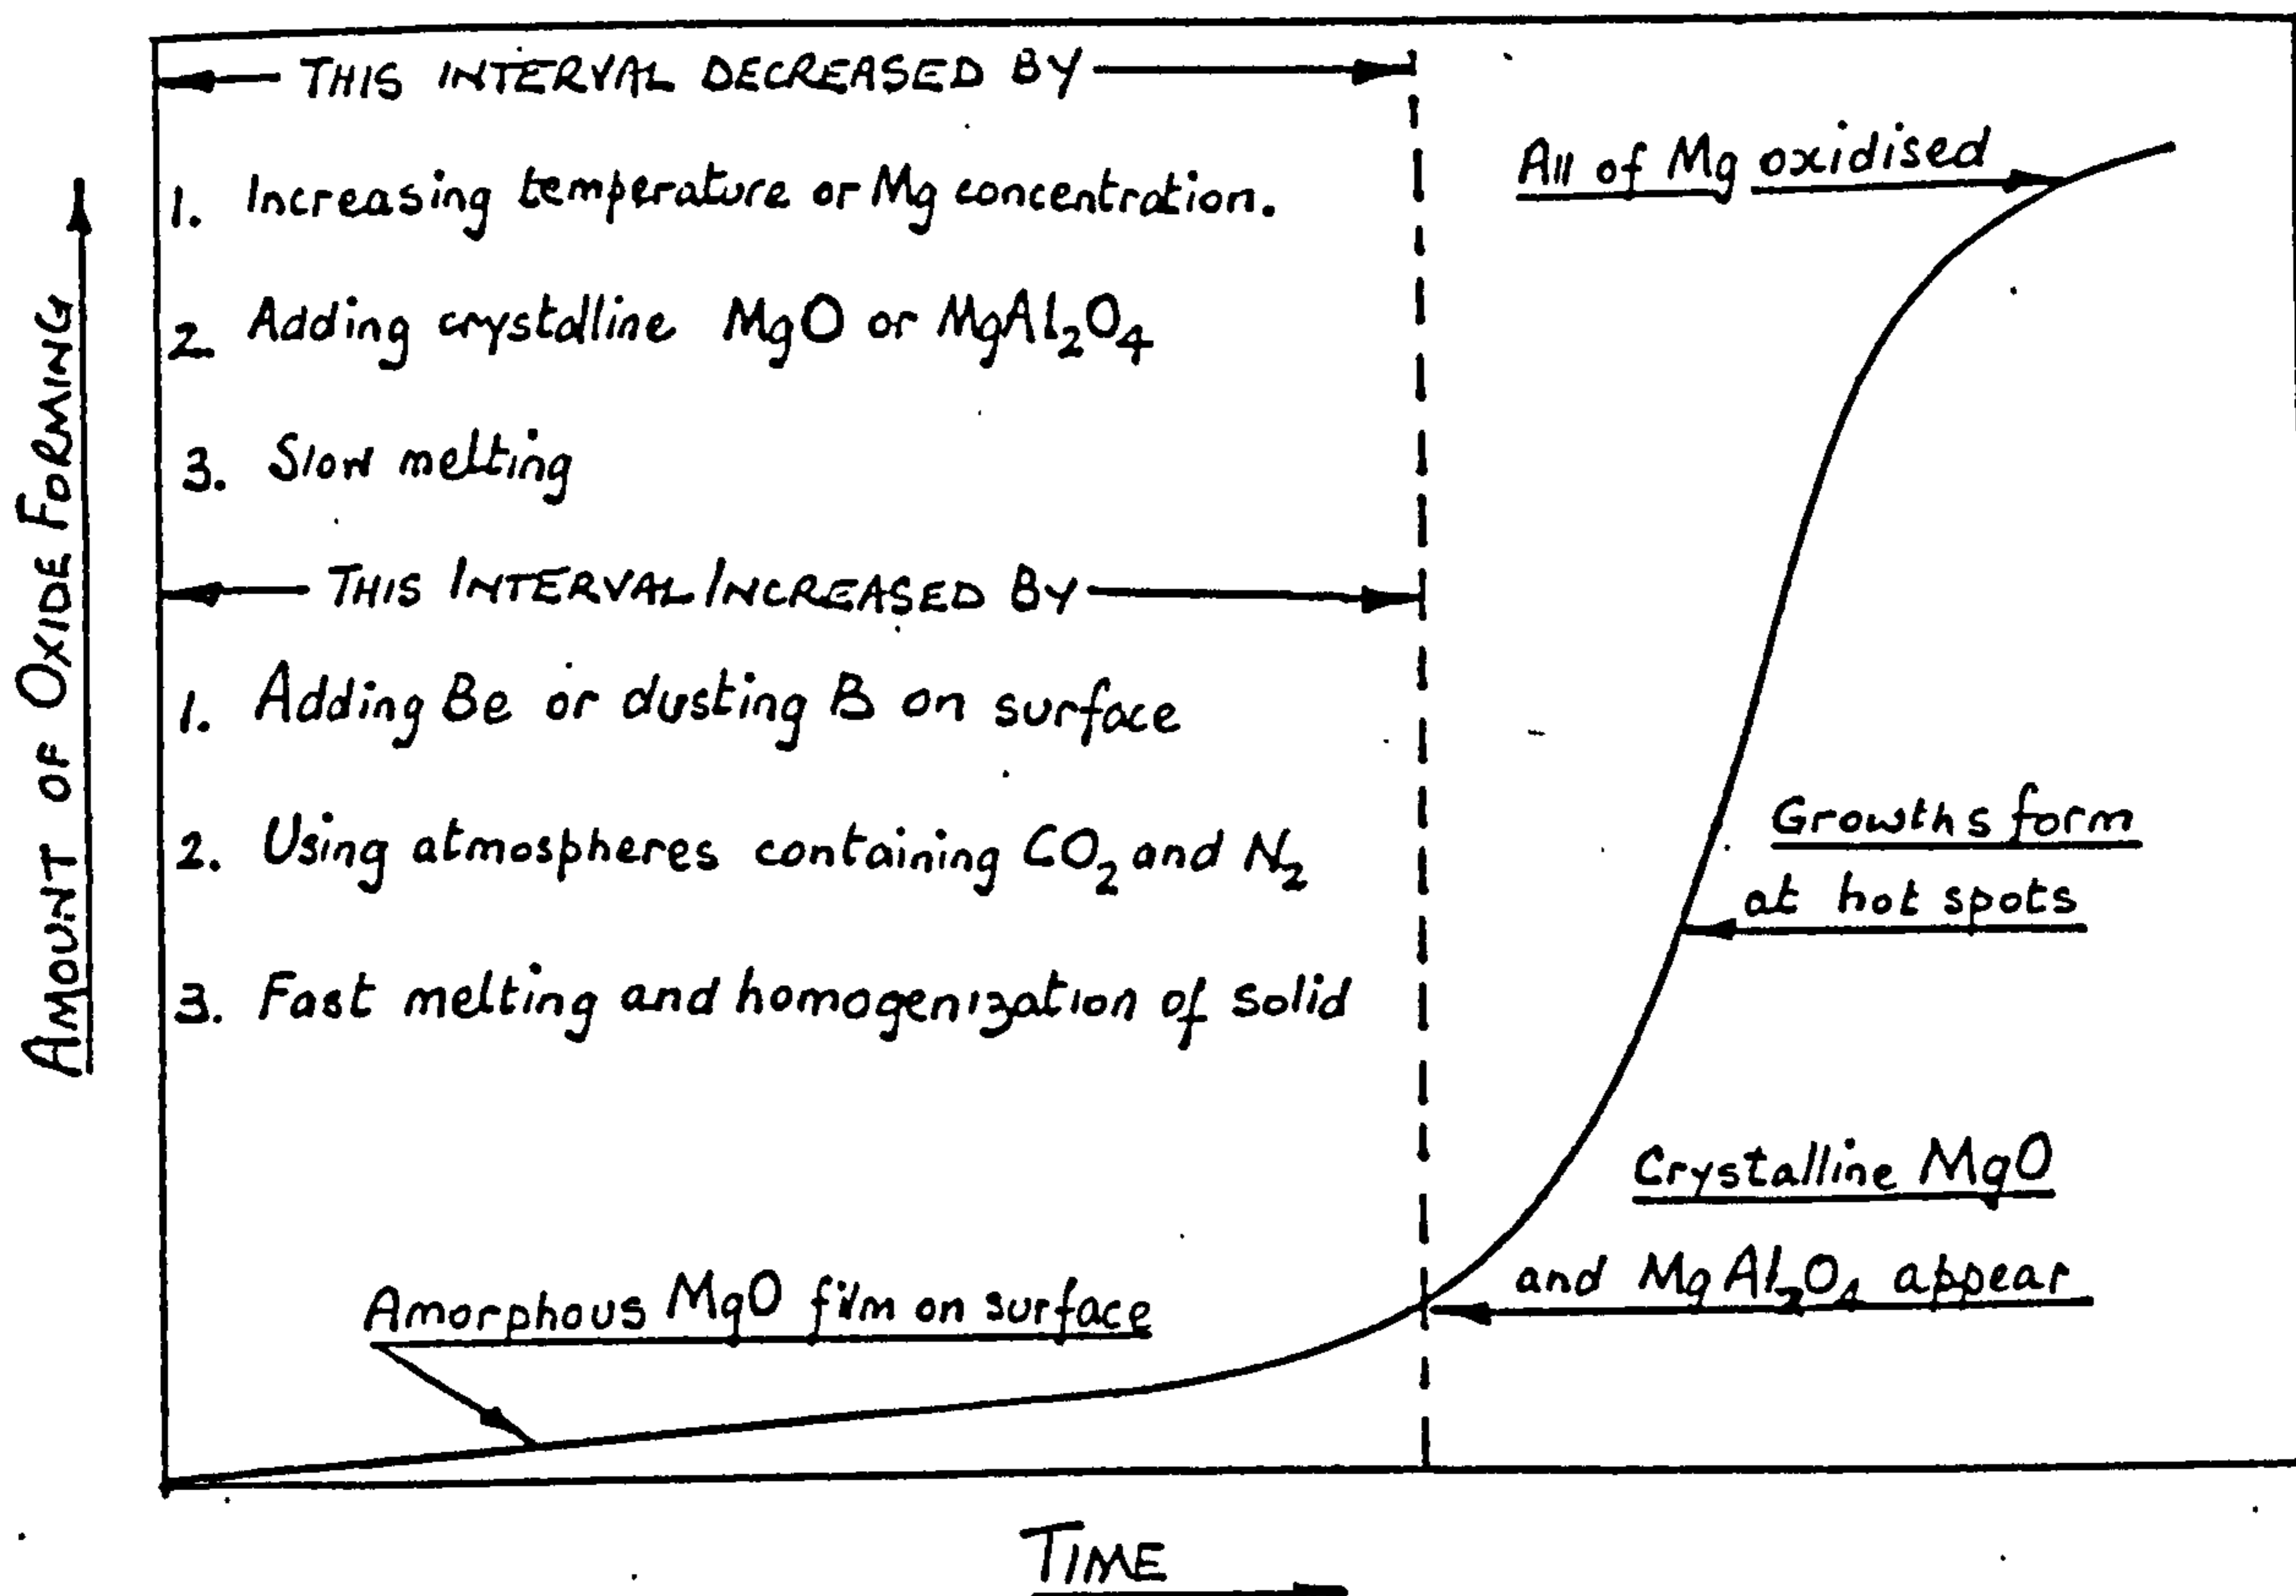 THIS INTERVAL DECREASED BY
1. Increasing temperature or Mg concentration.
2 Adding crystalline MgO or MgAl₂O₄
3. Slow melting
THIS INTERVAL INCREASED BY
1. Adding Be or dusting B on surface
2. Using atmospheres containing CO₂ and N₂
3. Fast melting and homogenization of solid
Amorphous MgO film on surface
All of Mg oxidised
Growths form
at hot spots
Crystalline MgO
and MgAl₂O₄ appear
AMOUNT OF OXIDE FORMING
TIME